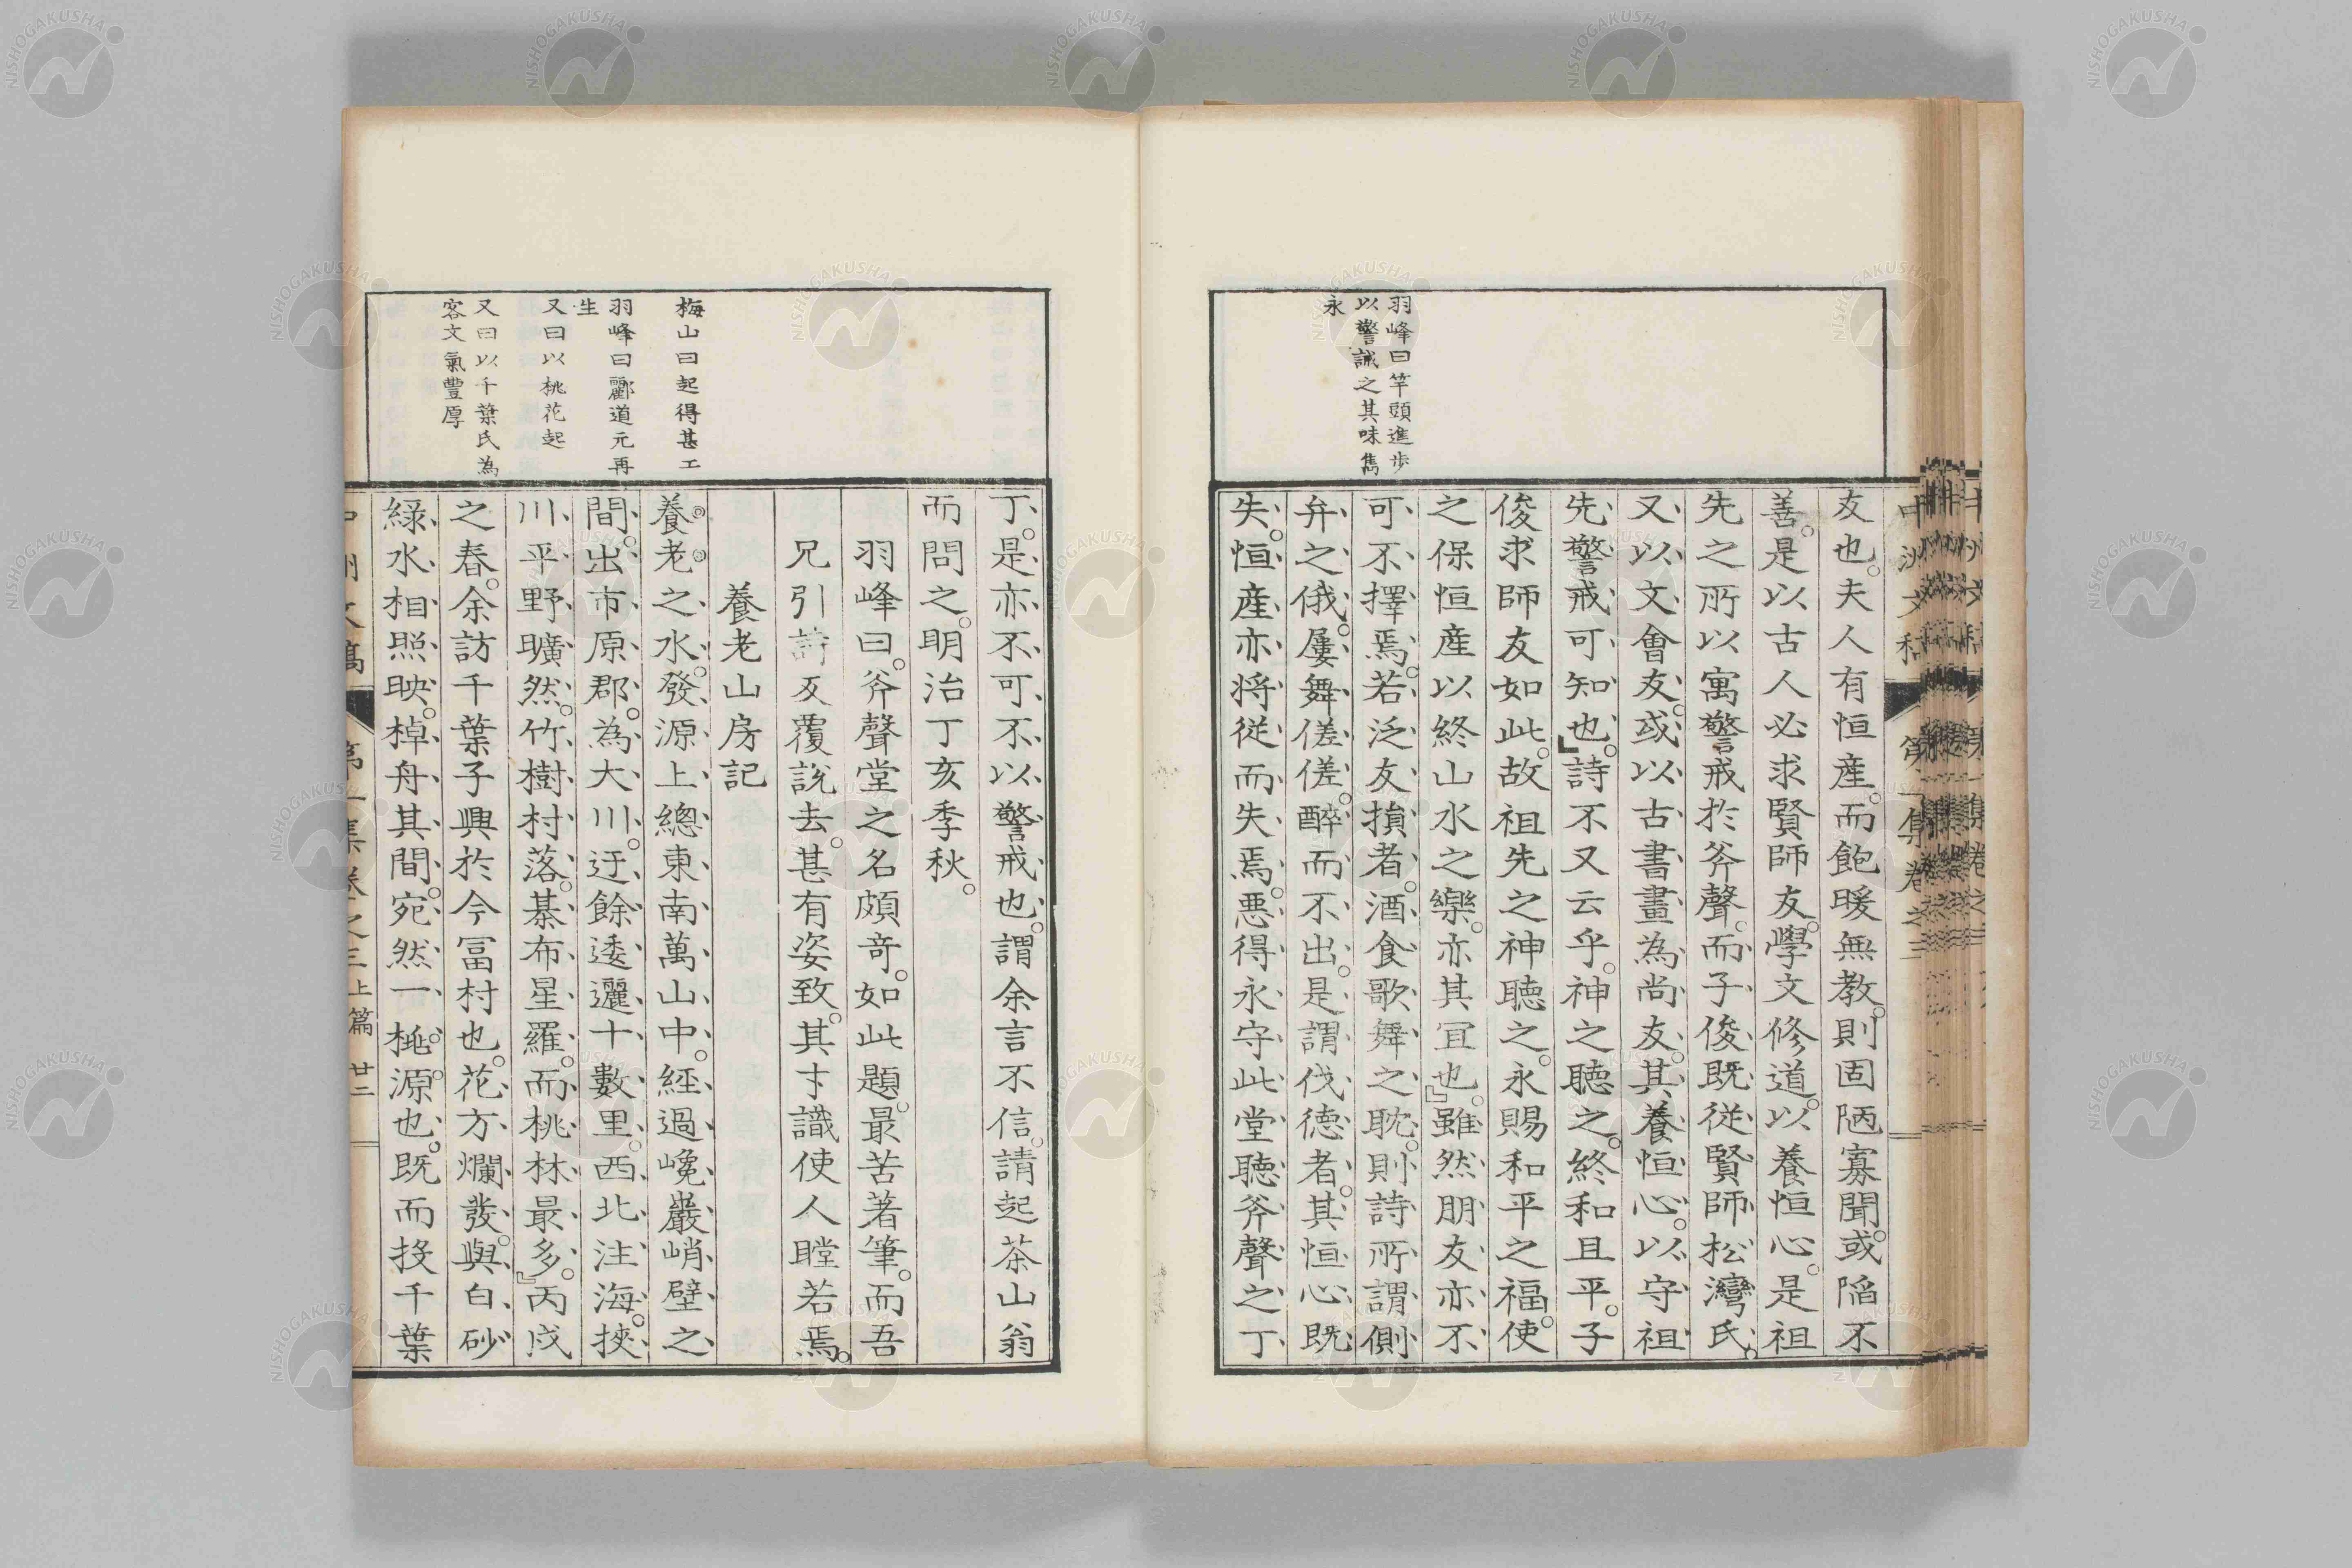 羽峰曰竿頭進步
以警誡之其味雋
永
友也。夫人有恒産。而飽暖無教。則固陋寡聞。或陷不
善。是以古人必求賢師友。學文修道。以養恒心。是祖
先之所以寓警戒於斧聲。而子俊既從賢師松灣氏。
又以文會友。或以古書畫為尚友。其養恒心。以守祖
先警戒可知也。』詩不又云乎。神之聽之。終和且平。子
俊求師友如此。故祖先之神聽之。永賜和平之福。使
之保恒産以終山水之樂。亦其宜也。』雖然朋友亦不
可不擇焉。若泛友損者。酒食歌舞之耽。則詩所謂側
弁之俄。屢舞傞傞。醉而不出。是謂伐德者。其恒心既
失。恒産亦将從而失焉。悪得永守此堂聽斧聲之丁
丁。是亦不可不以警戒也。謂余言不信。請起茶山翁
而問之。明治丁亥季秋。
羽峰曰。斧聲堂之名頗竒。如此題。最苦著筆。而吾
兄引詩反覆說去。甚有姿致。其才識使人瞠若焉。
養老山房記
梅山曰起得甚工
羽峰曰酈道元再
生
又曰以桃花起
又曰以千葉氏為
客文氣豐厚
養老之水。發源上總東南萬山中。經過巉巖峭壁之
間。出市原郡。為大川。迂餘逶邐十數里。西北注海。挾
川平野曠然。竹樹村落。棊布星羅。而桃林最多。』丙戌
之春。余訪千葉子興於今冨村也。花方爛發。與白砂
綠水相照映。棹舟其間。宛然一桃源也。既而投千葉
NISHOGAKUSHA